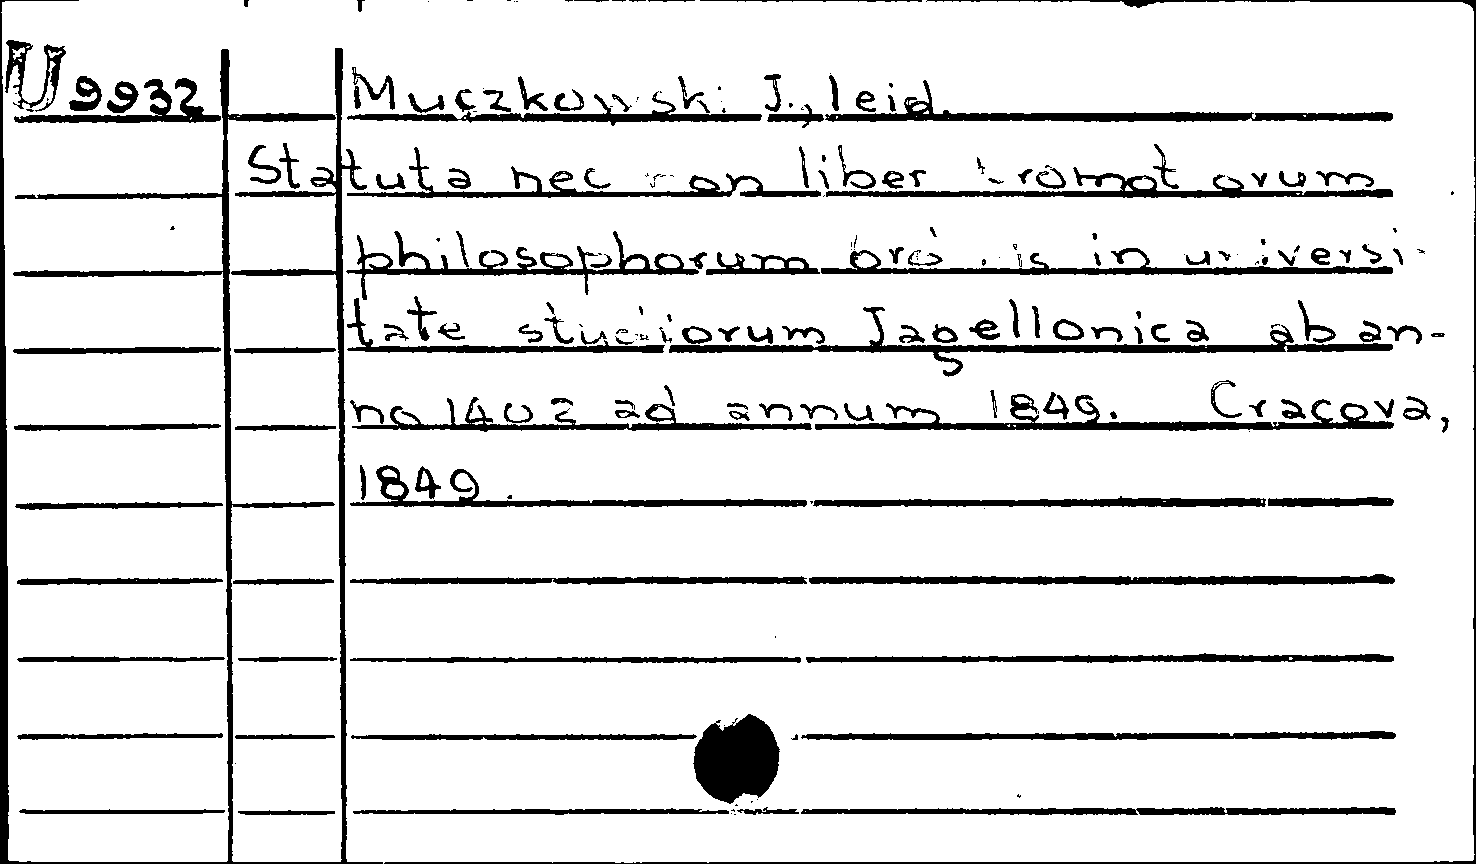 U 9932 Muczkowski J., leid.
Statuta nec non liber promotorum
philosophorum ordinis in universi-
tate studiorum Jagellonica ab an-
no 1402 ad annum 1849. Cracova,
1849.